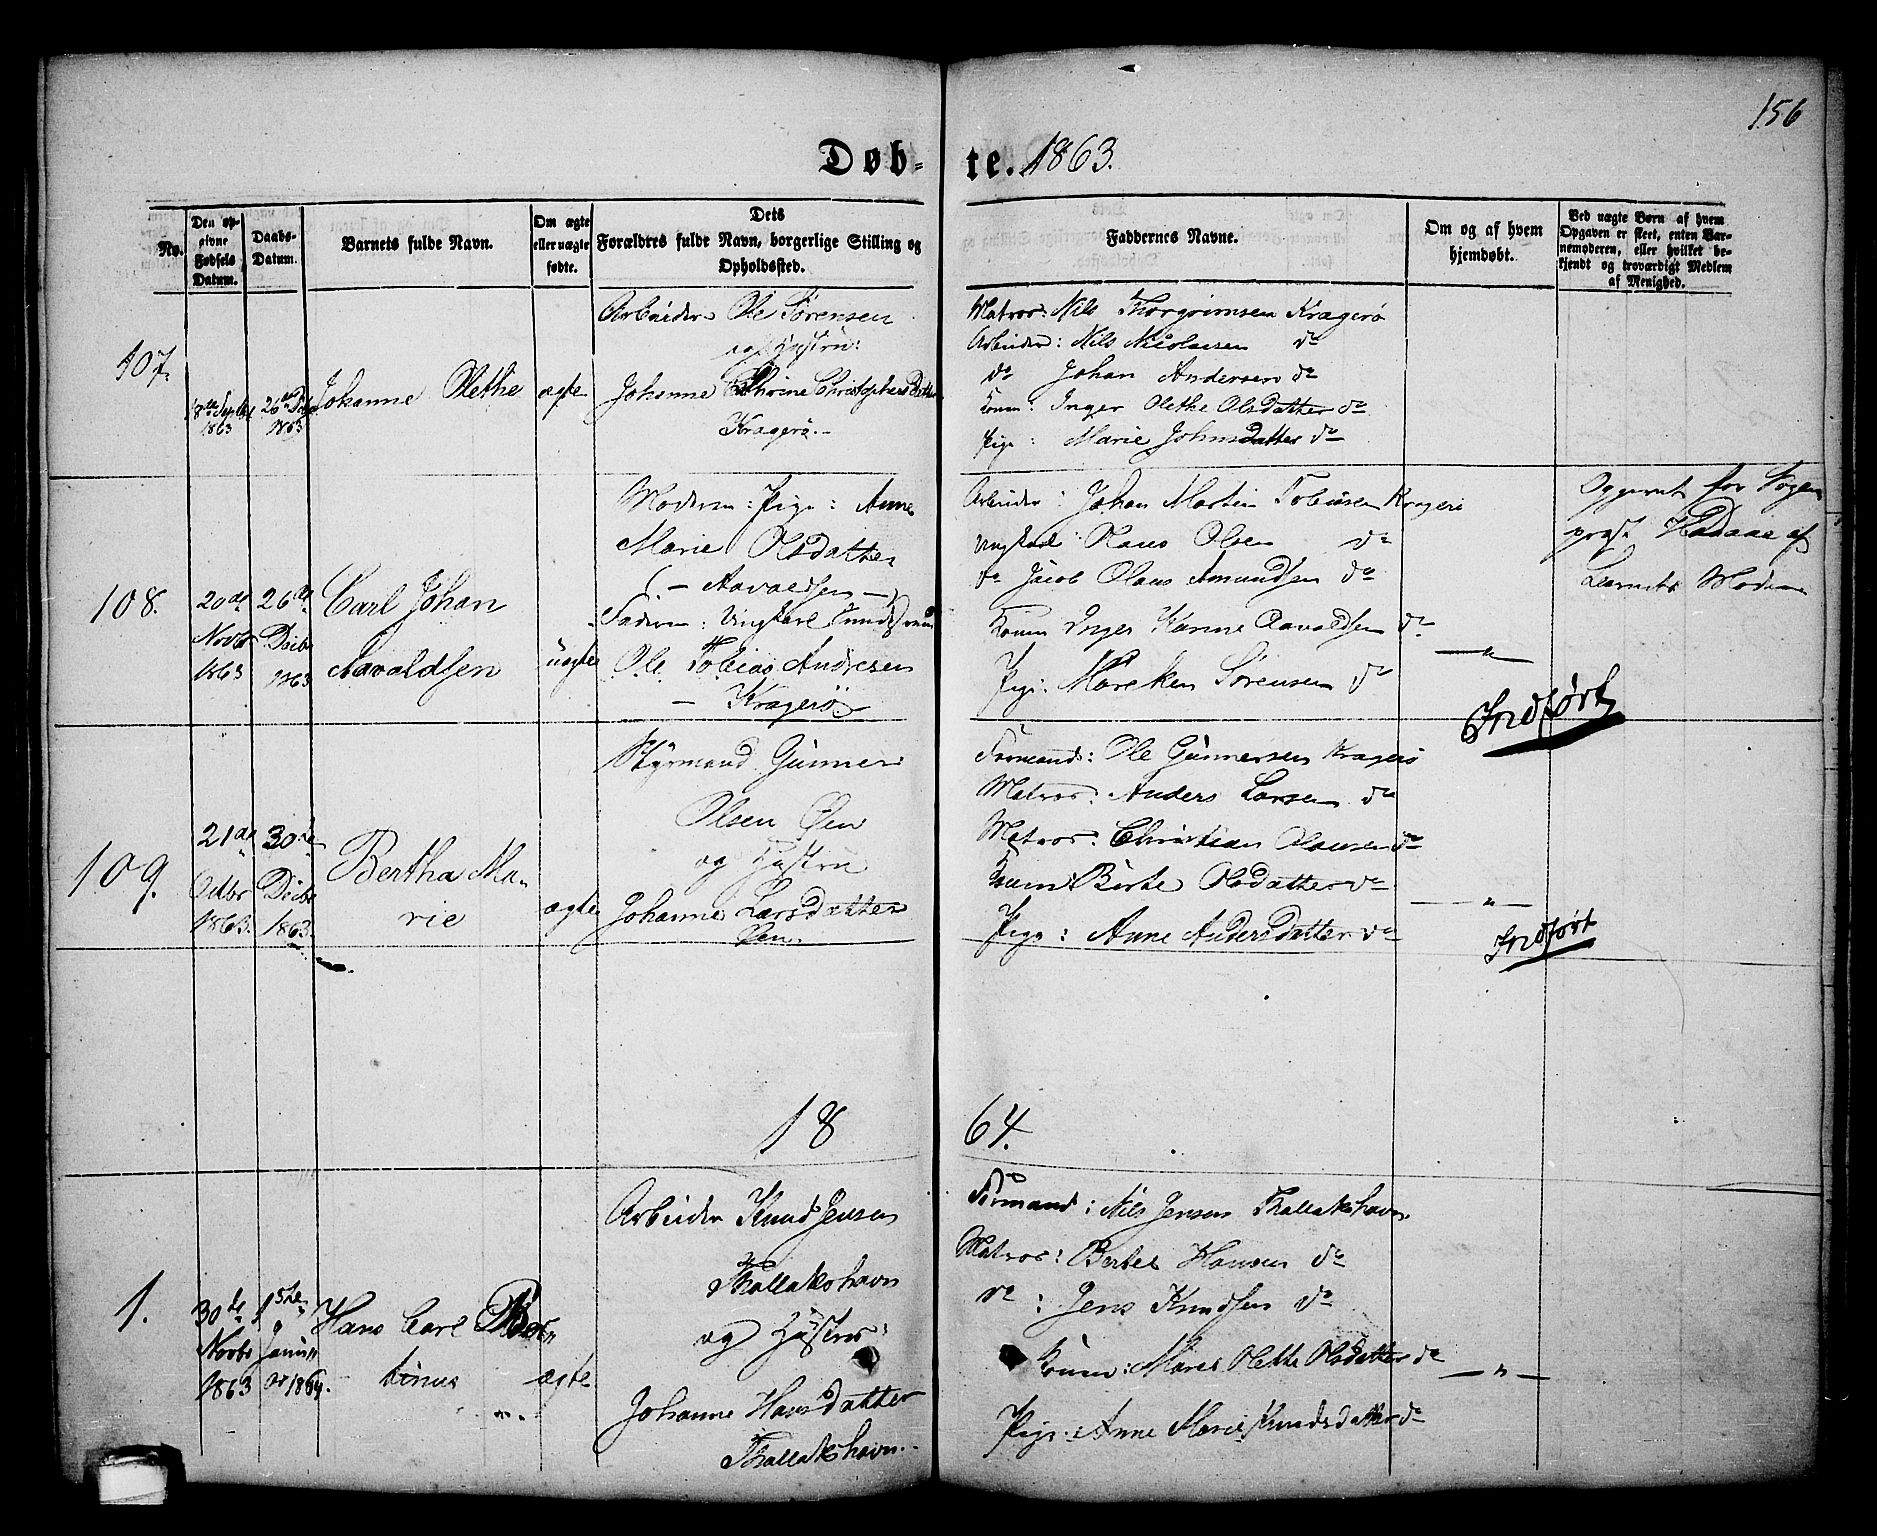 156
Døb- te. 1863.
No.
Den op-
givne
Fødsels
Datum.
Daabs-
Datum.
Barnets fulde Navn.
Om ægte
eller uægte
fødte.
Dets
Forældres fulde Navn, borgerlige Stilling og
Opholdssted.
Faddernes Navne.
Om og af hvem
hjemdøbt.
Ved uægte Børn af hvem
Opgaven er skeet, enten Bar-
nemoderen, eller hvilket be-
kjendt og troværdigt Medlem
af Menighed.
107.
1863
26de
1863
Johanne Olethe
ægte
Arbeider Ole Sørensen
og Hustru:
Johanne Cathrine Christophersdatter
Kragerø.
Matros: Nils Thorgrimsen Kragerø
Arbeider: Nils Nicolaisen do
do Johan Andersen do
Konen: Inger Olethe Olsdatter do
Pige: Marie Johnsdatter do
108.
20de
Novbr
1863
26de
Decbr
1863
Carl Johan
Aavaldsen
uægte
Moderen: Pige: Anne
Marie Olsdatter
(- Aavaldsen -)
Faderen: Ungkarl
Ole Tobias Andresen
- Kragerø
Arbeider: Johan Martin Tobiasen Kragerø
Ungkarl Olaus Olsen do
do Jacob Olaus Amundsen do
Konen Inger Karine Aavaldsen do
Pige: Mareken Sørensen do
— " —
Indført
Opgivet for Sogne
præst af
Barnets Moder
109.
21de
Octbr
1863.
30te
Decbr
1863.
Bertha Ma-
rie
ægte
Styrmand Gunner
Olsen Øen
og Hustru
Johanne Larsdatter
Øen.
Formand: Ole Gunnersen Kragerø
Matros: Anders Larsen do
Matros: Christian Olausen do
Konen: Birte Olsdatter do
Pige: Anne Andersdatter do
— " —
Indført
18 64.
1.
30te
Novbr
1863
1ste
Janu"
ar 1864.
Hans Carl Mar-
tinus
ægte
Arbeider Knud Jensen
Thallakshavn
og Hustru:
Johanne Hansdatter
Thallakshavn.
Formand: Nils Jensen Thallakshavn
Matros: Bertel Hansen do
do: Jens Knudsen do
Konen: Maren Olette Olsdatter do
Pige: Anne Marie Knudsdatter do
— " —